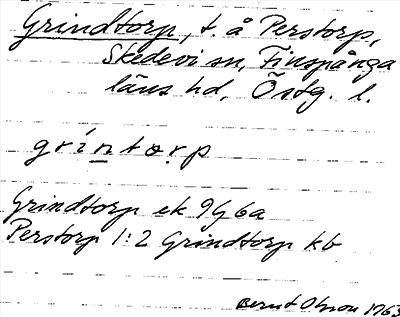 Grindtorp, t. å Perstorp,
Skedevi sn, Finspånga
läns hd, Östg. l.
grintorp
Grindtorp ek 9G6a
Perstorp 1:2 Grindtorp kb
Bernt Olsson 1963